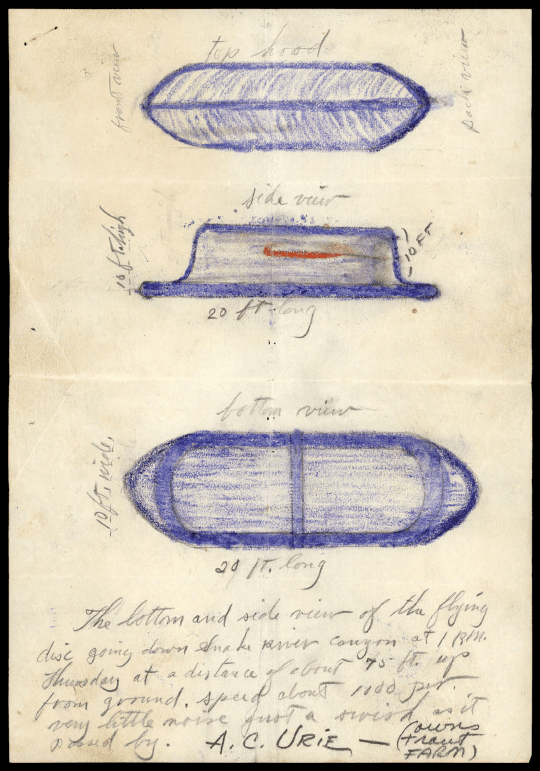 top hood
front view
back view
side view
10 ft. high
10 FT
20 ft. long
bottom view
10 ft. wide.
20 ft. long
The bottom and side view of the flying
disc going down Snake River canyon at 1 P.M.
Thursday at a distance of about 75 ft. up
from ground. speed about 1000 per.
very little noise just a swish as it
passed by. A.C. URIE — (owns
Trout
FARM)